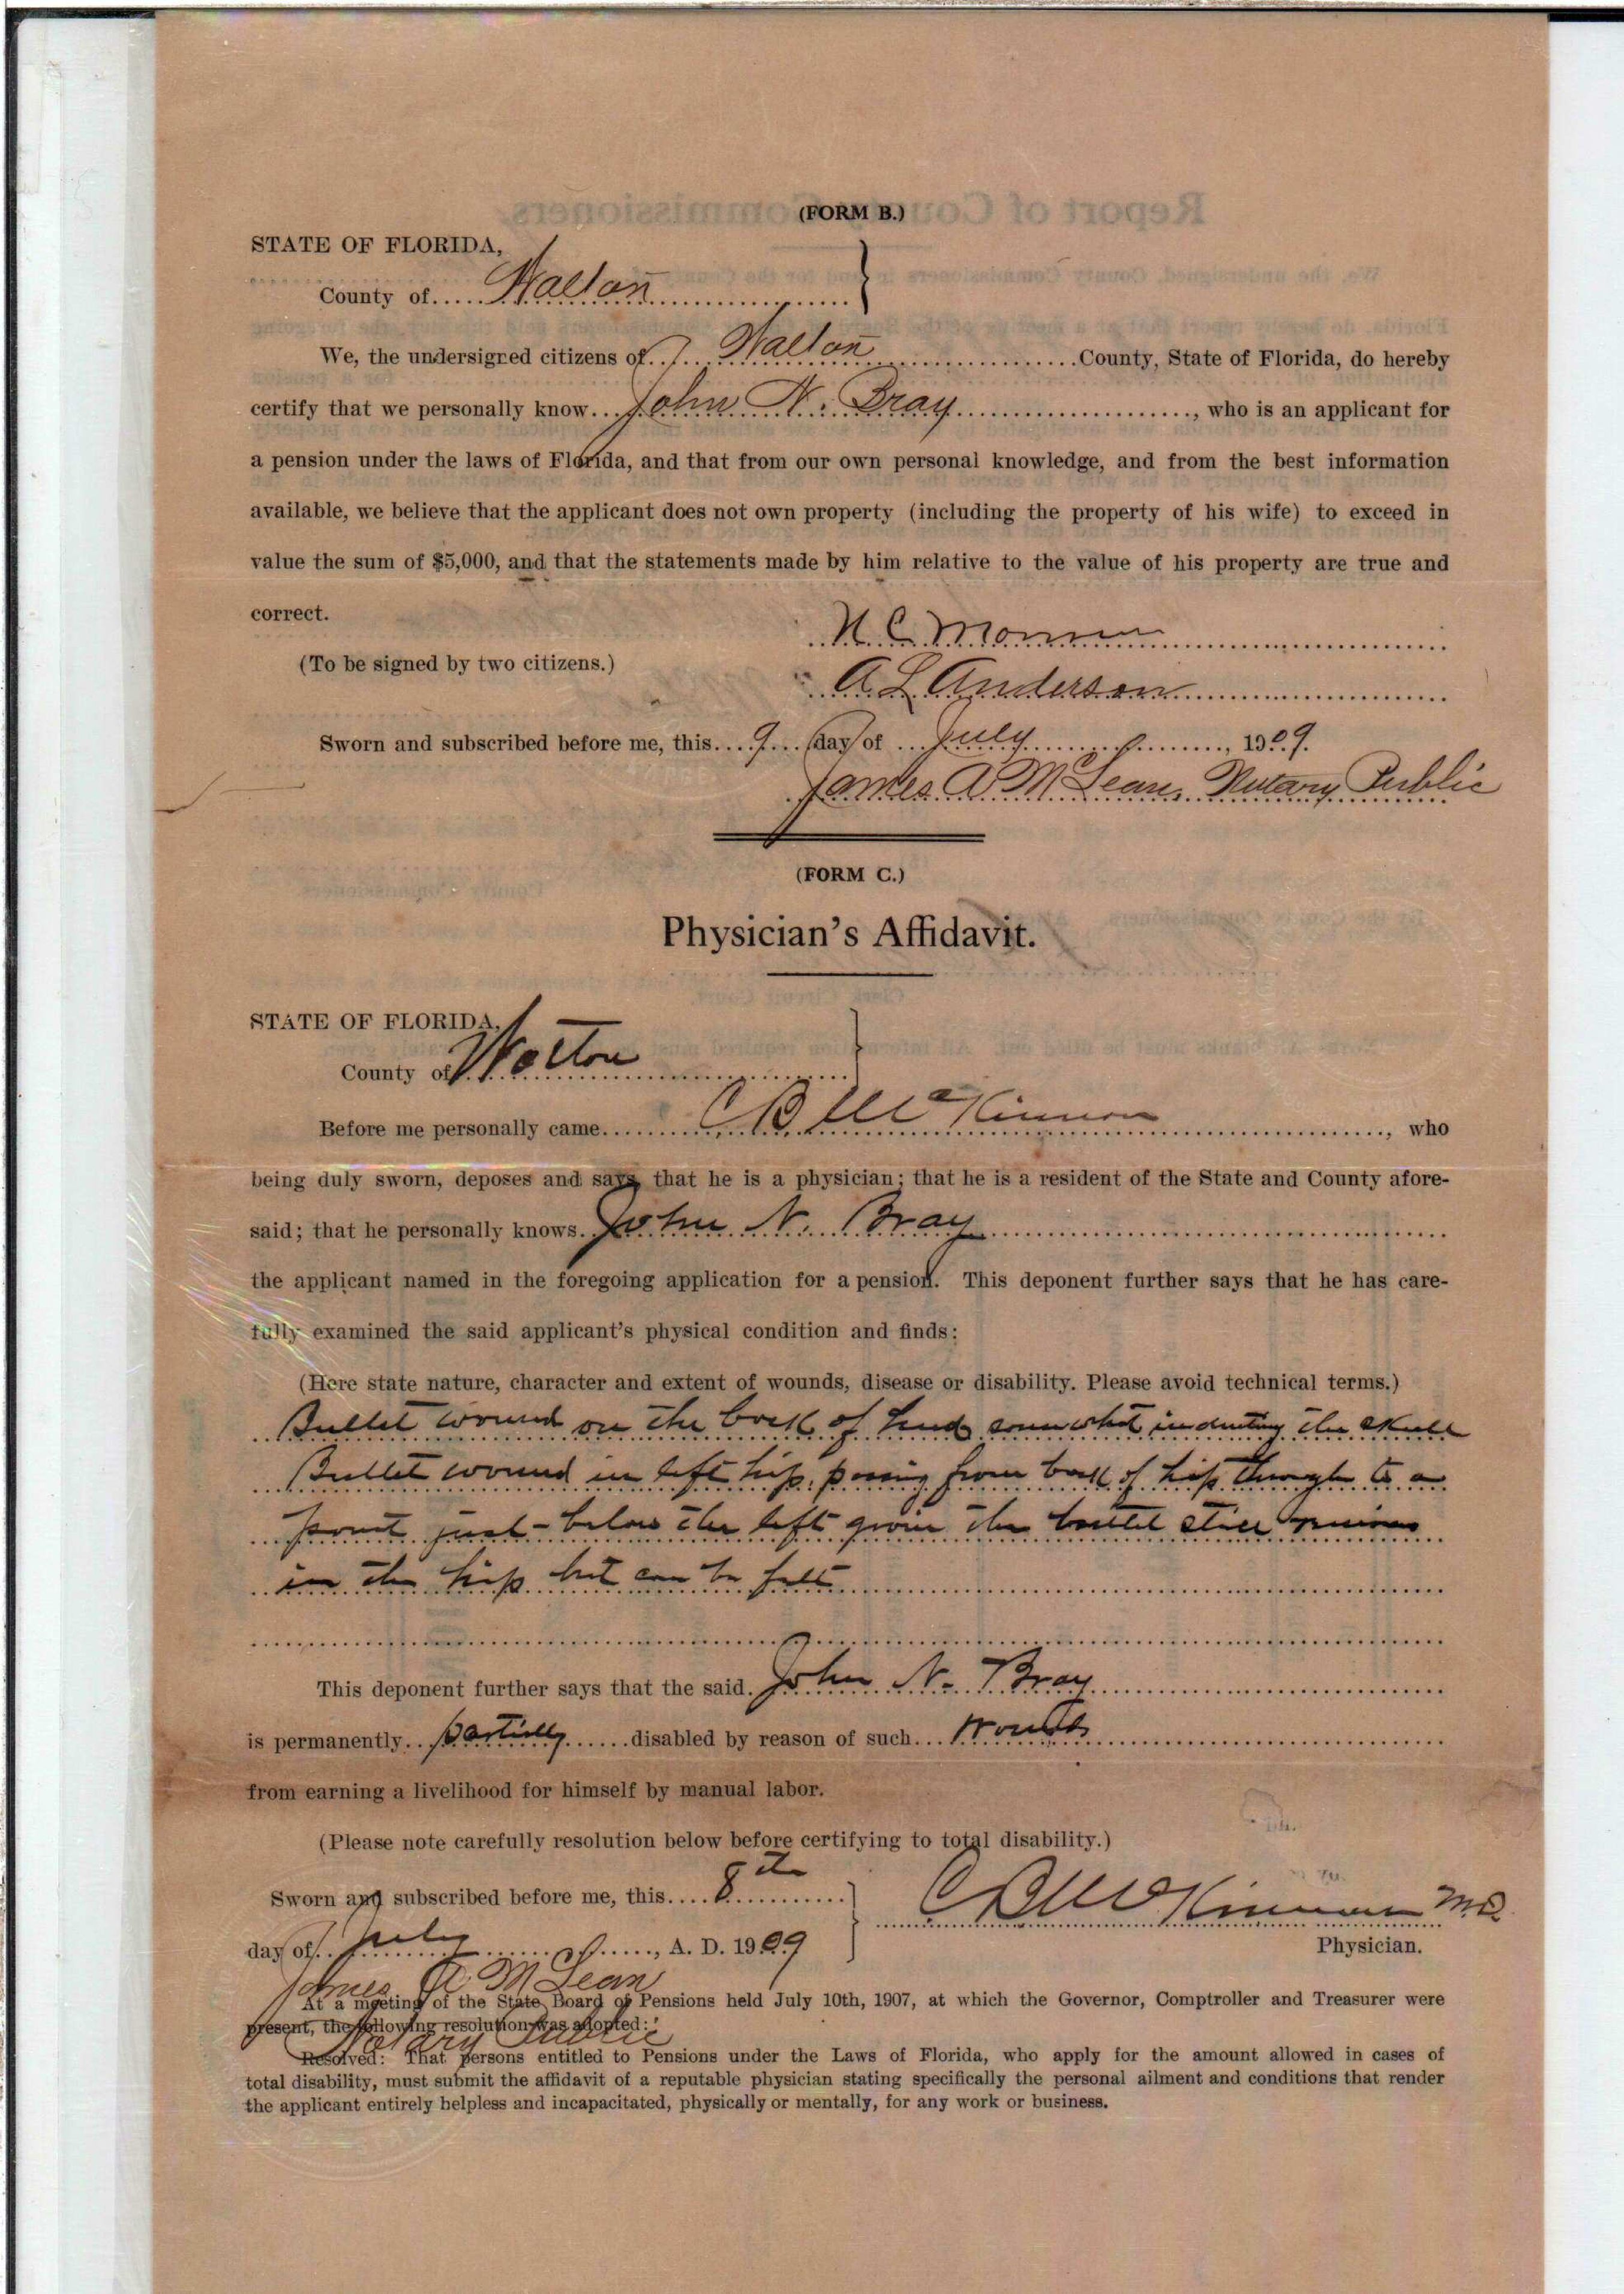 (FORM B.)
STATE OF FLORIDA,
County of Walton
We, the undersigned citizens of Walton County, State of Florida, do hereby
certify that we personally know John N. Bray, who is an applicant for
a pension under the laws of Florida, and that from our own personal knowledge, and from the best information
available, we believe that the applicant does not own property (including the property of his wife) to exceed in
value the sum of $5,000, and that the statements made by him relative to the value of his property are true and
correct.
(To be signed by two citizens.)
A L Anderson
Sworn and subscribed before me, this 9 day of July, 1909.
James A McLean, Notary Public
(FORM C.)
Physician's Affidavit.
STATE OF FLORIDA,
County of Walton
Before me personally came C B McKinnon, who
being duly sworn, deposes and says that he is a physician; that he is a resident of the State and County afore-
said; that he personally knows John N. Bray
the applicant named in the foregoing application for a pension. This deponent further says that he has care-
fully examined the said applicant's physical condition and finds:
(Here state nature, character and extent of wounds, disease or disability. Please avoid technical terms.)
Bullet wound on the back of head somewhat indenting the skull
Bullet wound in left hip passing from back of hip through to a
point just below the left groin the bullet still remains
in the hip but can be felt
This deponent further says that the said John N. Bray
is permanently partially disabled by reason of such wounds
from earning a livelihood for himself by manual labor.
(Please note carefully resolution below before certifying to total disability.)
Sworn and subscribed before me, this 8th
day of July, A. D. 1909
C B McKinnon M.D.
Physician.
James A McLean
Notary Public
At a meeting of the State Board of Pensions held July 10th, 1907, at which the Governor, Comptroller and Treasurer were
present, the following resolution was adopted:
Resolved: That persons entitled to Pensions under the Laws of Florida, who apply for the amount allowed in cases of
total disability, must submit the affidavit of a reputable physician stating specifically the personal ailment and conditions that render
the applicant entirely helpless and incapacitated, physically or mentally, for any work or business.